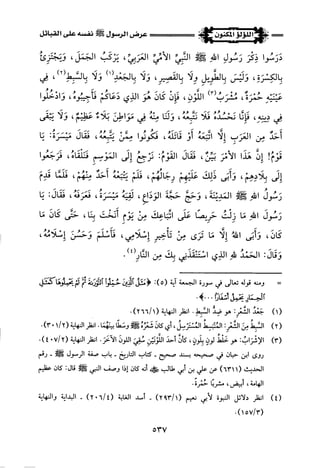 اللؤلؤ المكنون
عرض الرسول ﷺ نفسه على القبائل
دَرَسُوا ذِكْرَ رَسُولِ اللهِ ﷺ النَّبِيِّ الأُمِّيِّ العَرَبِيِّ، يَرْكَبُ الجَمَلَ، وَيَجْتَزِئُ
بِالكِسْرَةِ، وَلَيْسَ بِالطَّوِيلِ وَلَا بِالقَصِيرِ، وَلَا بِالجَعْدِ(١) وَلَا بِالسَّبِطِ(٢)، فِي
عَيْنَيْهِ حُمْرَةٌ، مُشْرَبُ(٣) اللَّوْنِ، فَإِنْ كَانَ هُوَ الذِي دَعَاكُمْ فَأَجِيبُوهُ، وَادْخُلُوا
فِي دِينِهِ، فَإِنَّا نَحْسُدُهُ فَلَا نَتَّبِعُهُ، وَلَنَا مِنْهُ فِي مَوَاطِنَ بَلَاءٌ عَظِيمٌ، وَلَا يَبْقَى
أَحَدٌ مِنَ العَرَبِ إِلَّا اتَّبَعَهُ أَوْ قَاتَلَهُ، فَكُونُوا مِمَّنْ يَتَّبِعُهُ، فَقَالَ مَيْسَرَةُ: يَا
قَوْمُ! إِنَّ هَذَا الأَمْرَ بَيِّنٌ، فَقَالَ القَوْمُ: نَرْجِعُ إِلَى المَوْسِمِ فَنَلْقَاهُ، فَرَجَعُوا
إِلَى بِلَادِهِمْ، وَأَبَى ذَلِكَ عَلَيْهِمْ رِجَالُهُمْ، فَلَمْ يَتَّبِعْهُ أَحَدٌ مِنْهُمْ، فَلَمَّا قَدِمَ
رَسُولُ اللهِ ﷺ المَدِينَةَ، وَحَجَّ حَجَّةَ الوَدَاعِ، لَقِيَهُ مَيْسَرَةُ، فَعَرَفَهُ، فَقَالَ: يَا
رَسُولَ اللهِ مَا زِلْتُ حَرِيصًا عَلَى اتِّبَاعِكَ مِنْ يَوْمِ أَنَخْتَ بِنَا، حَتَّى كَانَ مَا
كَانَ، وَأَبَى اللهُ إِلَّا مَا تَرَى مِنْ تَأْخِيرِ إِسْلَامِي، فَأَسْلَمَ وَحَسُنَ إِسْلَامُهُ،
وَقَالَ: الحَمْدُ للهِ الذِي اسْتَنْقَذَنِي بِكَ مِنَ النَّارِ(٤).
= ومنه قوله تعالى في سورة الجمعة آية (٥): ﴿مَثَلُ الَّذِينَ حُمِّلُوا التَّوْرَاةَ ثُمَّ لَمْ يَحْمِلُوهَا كَمَثَلِ
الْحِمَارِ يَحْمِلُ أَسْفَارًا...﴾.
(١) جَعْدُ الشَّعْرِ: هو ضِدُّ السَّبِطِ. انظر النهاية (٢٦٦/١).
(٢) السَّبِطُ مِنَ الشَّعْرِ: المُنْبَسِطُ المُسْتَرْسِلُ، أي كَانَ شَعْرُهُ ﷺ وَسَطًا بينَهُمَا. انظر النهاية (٣٠١/٢).
(٣) الإِشْرَابُ: هو خَلْطُ لَوْنٍ بِلَوْنٍ، كَأَنَّ أَحَدَ اللَّوْنَيْنِ سُقِيَ اللَّوْنَ الآخَرَ. انظر النهاية (٤٠٧/٢).
روى ابن حبان في صحيحه بسند صحيح ـ كتاب التاريخ ـ باب صفة الرسول ﷺ ـ رقم
الحديث (٦٣١١) عن علي بن أبي طالب ﷺ أنه كان إذا وصف النبي ﷺ قال: كان عظيم
الهامة، أبيض، مشربًا حُمْرَةً.
(٤) انظر دلائل النبوة لأبي نعيم (٢٩٣/١) ـ أسد الغابة (٢٠٦/٤) ـ البداية والنهاية
(١٥٧/٣).
٥٣٧